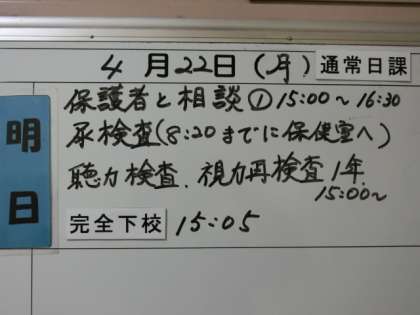 4月22日(月) 通常日課
明日
保護者と相談① 15:00～16:30
尿検査(8:20までに保健室へ)
聴力検査、視力再検査 1年
15:00～
完全下校 15:05